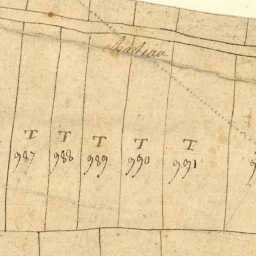 T T T T T
987 988 989 990 991